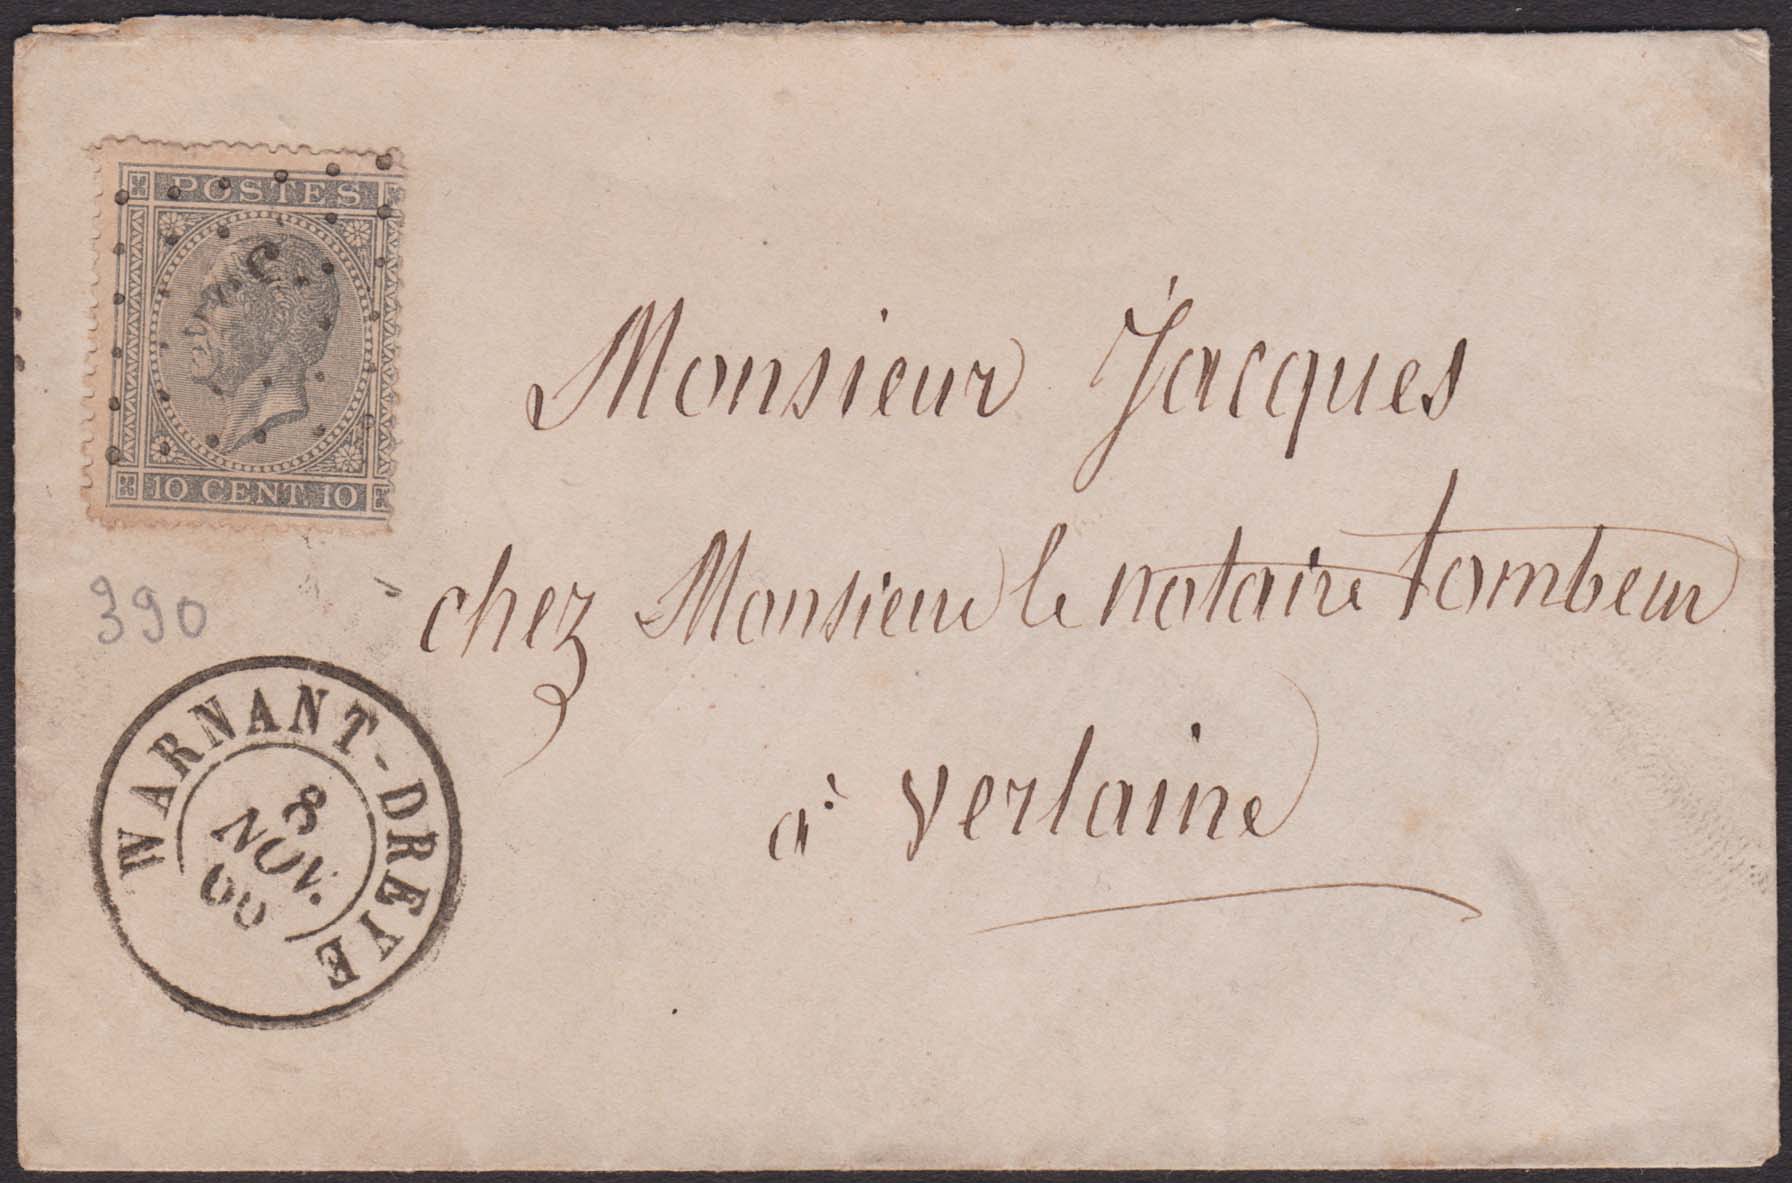 POSTES
10 CENT. 10
390
WARNANT-DREYE
8
NOV.
Monsieur Jacques
chez Monsieur le notaire tombeur
à verlaine